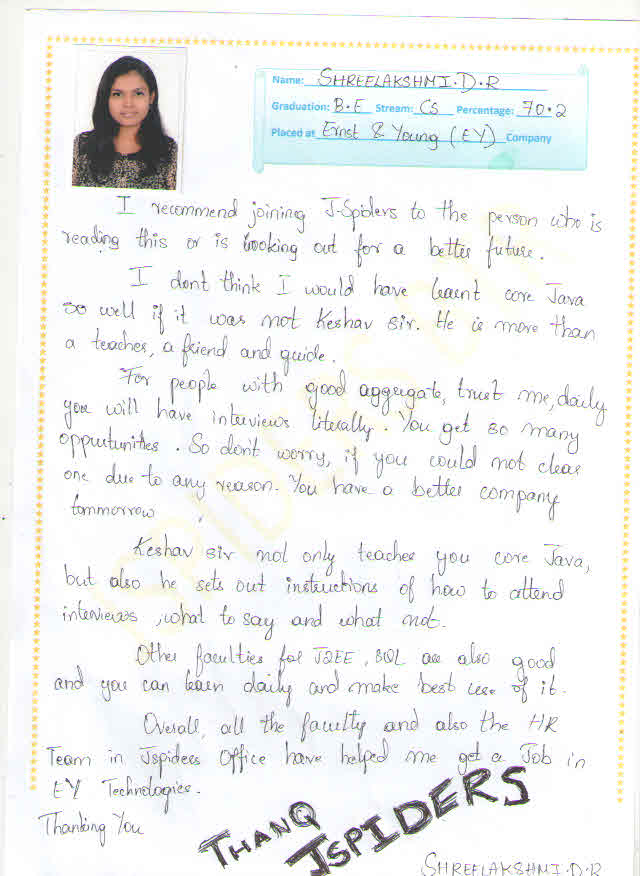 Name: SHREELAKSHMI.D.R
Graduation: B.E Stream: CS Percentage: 70.2
Placed at Ernst & Young (EY) Company
I recommend joining J-Spiders to the person who is
reading this or is looking out for a better future.
I dont think I would have learnt core Java
so well if it was not Keshav sir. He is more than
a teacher, a friend and guide.
For people with good aggregate, trust me, daily
you will have interviews literally. You get so many
oppurtunities. So don't worry, if you could not clear
one due to any reason. You have a better company
tommorrow.
Keshav sir not only teaches you core Java,
but also he sets out instructions of how to attend
interviews, what to say and what not.
Other faculties for J2EE, SQL are also good
and you can learn daily and make best use of it.
Overall, all the faculty and also the HR
Team in Jspiders Office have helped me get a Job in
EY Technologies.
Thanking You
THANQ
JSPIDERS
SHREELAKSHMI.D.R